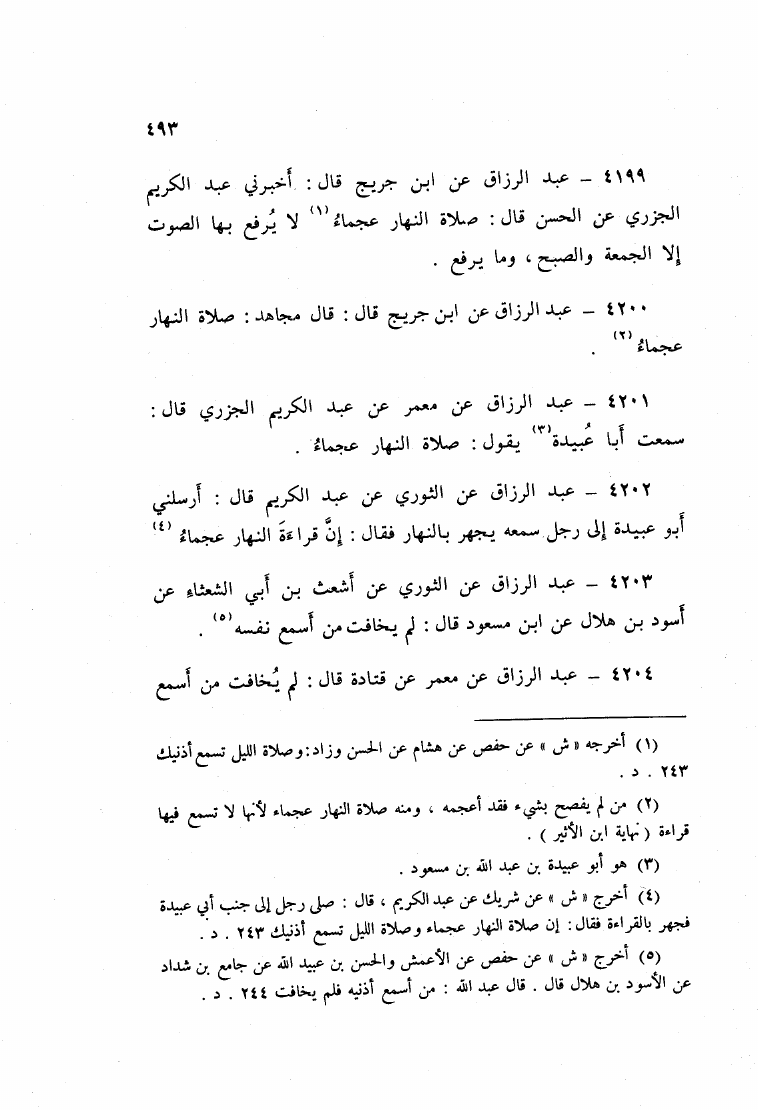 ٤٩٣
٤١٩٩ – عبد الرزاق عن ابن جريج قال : أَخبرني عبد الكريم
الجزري عن الحسن قال : صلاة النهار عجماءُ(١) لا يُرفع بها الصوت
إلا الجمعة والصبح ، وما يرفع .
٤٢٠٠ – عبد الرزاق عن ابن جريج قال : قال مجاهد : صلاة النهار
عجماءُ(٢) .
٤٢٠١ – عبد الرزاق عن معمر عن عبد الكريم الجزري قال :
سمعت أَبا عُبيدة(٣) يقول : صلاة النهار عجماءُ .
٤٢٠٢ – عبد الرزاق عن الثوري عن عبد الكريم قال : أَرسلني
أَبو عبيدة إلى رجل سمعه يجهر بالنهار فقال : إِنَّ قراءَةَ النهار عجماءُ (٤)
٤٢٠٣ – عبد الرزاق عن الثوري عن أَشعث بن أَبي الشعثاء عن
أَسود بن هلال عن ابن مسعود قال : لم يخافت من أَسمع نفسه(٥) .
٤٢٠٤ – عبد الرزاق عن معمر عن قتادة قال : لم يُخافت من أَسمع
(١) أخرجه « ش » عن حفص عن هشام عن الحسن وزاد: وصلاة الليل تسمع أذنيك
٢٤٣ . د .
(٢) من لم يفصح بشيء فقد أعجمه ، ومنه صلاة النهار عجماء لأنها لا تسمع فيها
قراءة ( نهاية ابن الأثير ) .
(٣) هو أبو عبيدة بن عبد الله بن مسعود .
(٤) أخرج « ش » عن شريك عن عبد الكريم ، قال : صلى رجل إلى جنب أبي عبيدة
فجهر بالقراءة فقال : إن صلاة النهار عجماء وصلاة الليل تسمع أذنيك ٢٤٣ . د .
(٥) أخرج « ش » عن حفص عن الأعمش والحسن بن عبيد الله عن جامع بن شداد
عن الأسود بن هلال قال . قال عبد الله : من أسمع أذنيه فلم يخافت ٢٤٤ . د .